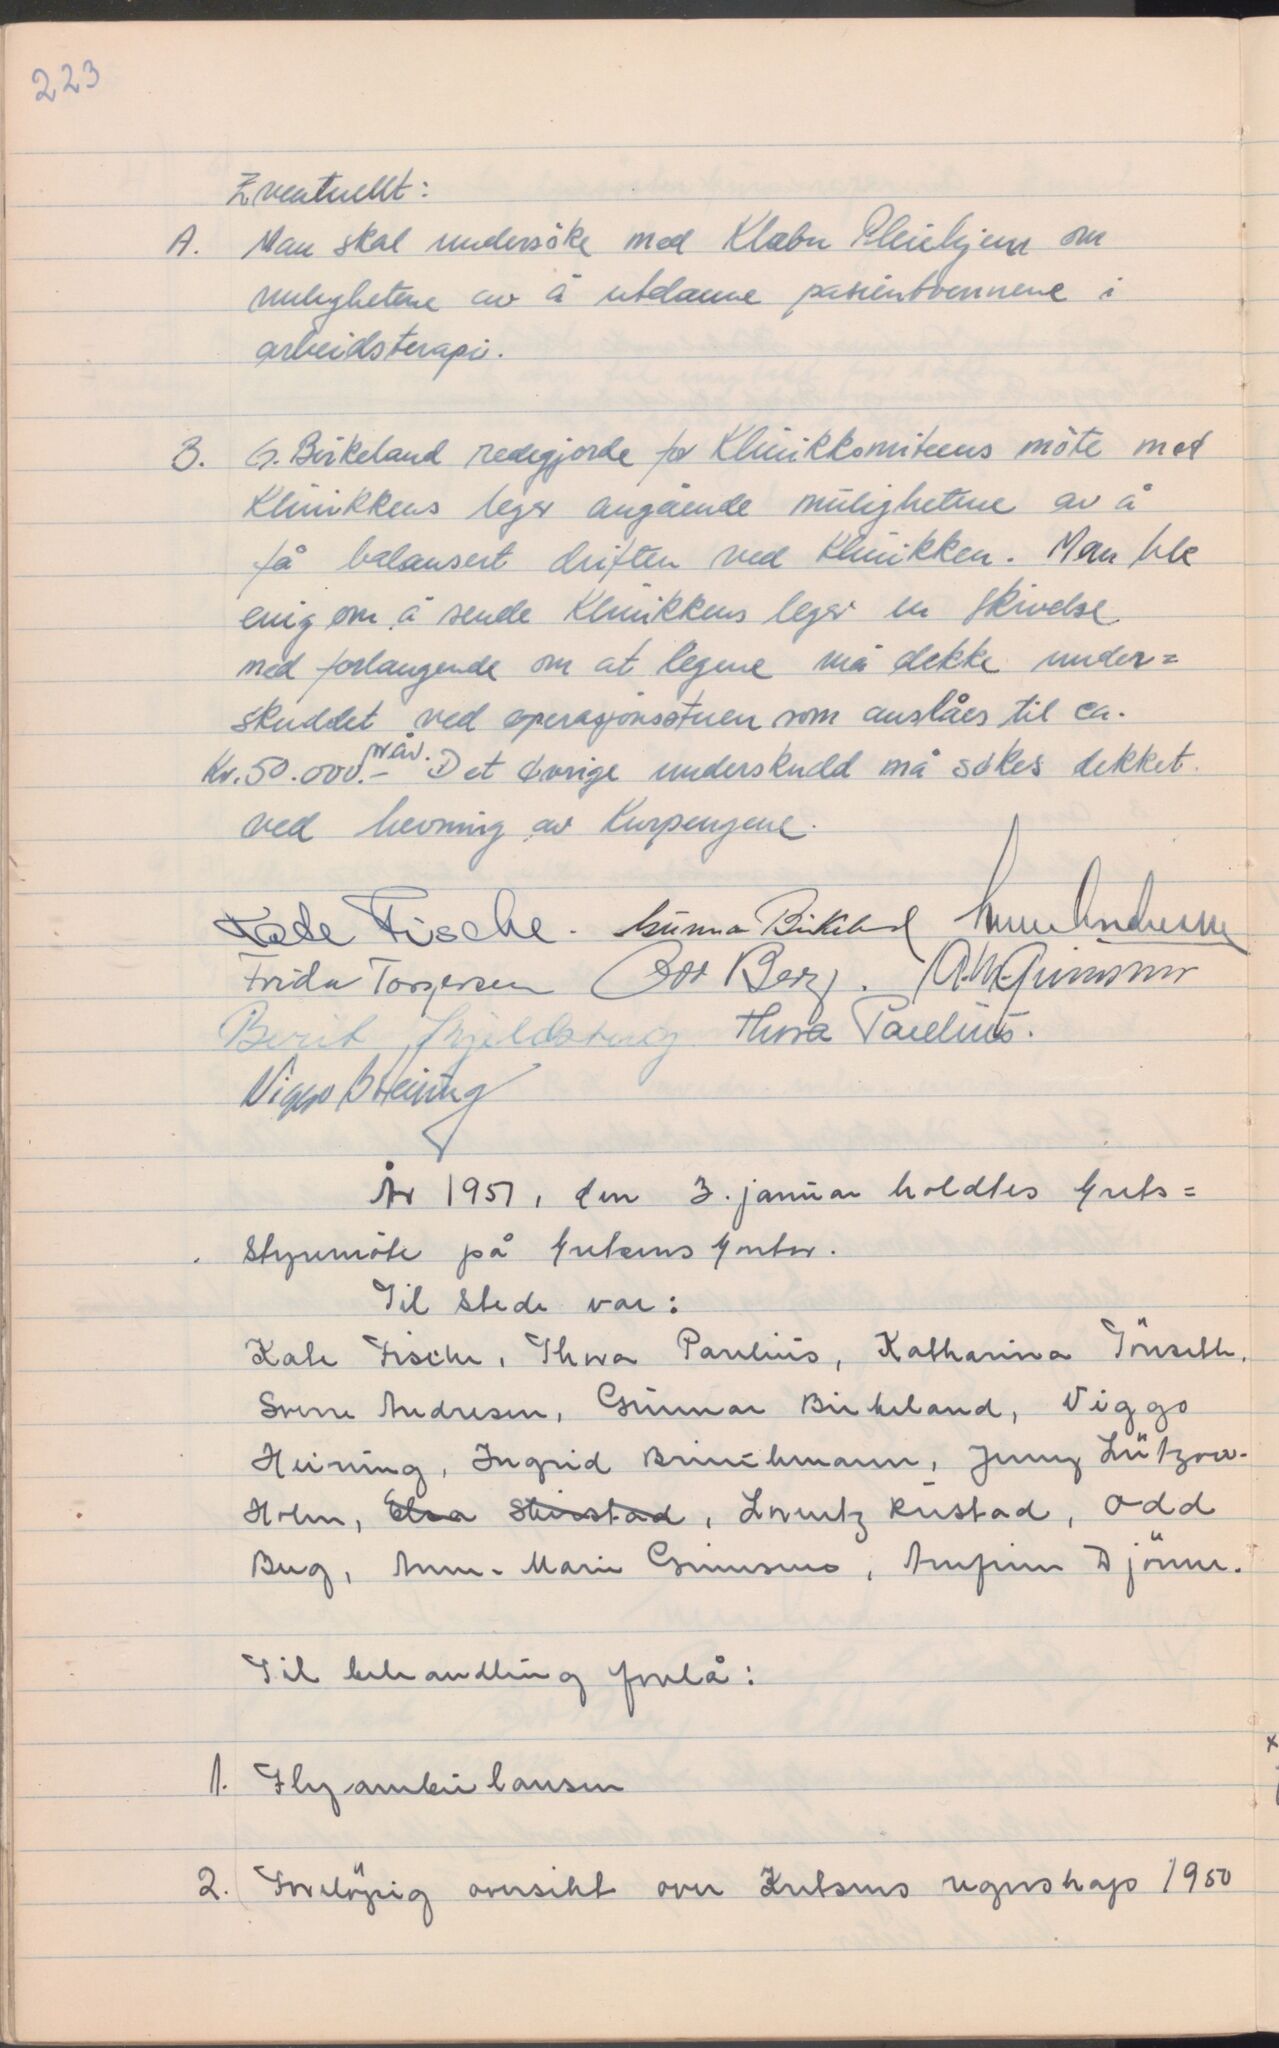 223
Eventuellt:
A. Man skal undersöke med Klæbu Pleiehjem om
mulighetene av å utdanne pasientvennene i
arbeidsterapi.
B. G. Birkeland redegjorde for Klinikkomiteens möte med
Klinikkens leger angående mulighetene av å
få balansert driften ved Klinikken. Man ble
enig om å sende Klinikkens leger en skrivelse
med forlangende om at legene må dekke under=
skuddet ved operasjonsstuen som anslåes til ca.
Kr. 50.000.- pr år. Det övrige underskudd må sökes dekket
ved hevning av Kurpengene.
Kate Fische. Gunnar Birkeland
Frida Torgersen Odd Berg. A.M. Grimsmo
Berit Thora Paulius.
Viggo Heining
År 1951, den 3. januar holdtes Krets=
styremöte på Kretsens Kontor.
Til stede var:
Kate Fische, Thora Paulius, Katharina Tönseth,
Sverre Andresen, Gunnar Birkeland, Viggo
Heining, Ingrid Brinchmann, Jenny Lützow-
Holm, Elsa Steistad, Lorentz Rustad, Odd
Berg, Anne-Marie Grimsmo, Arnfinn Djönne.
Til behandling forelå:
1. Flyambulansen
2. Forelöpig oversikt over Kretsens regnskap 1950